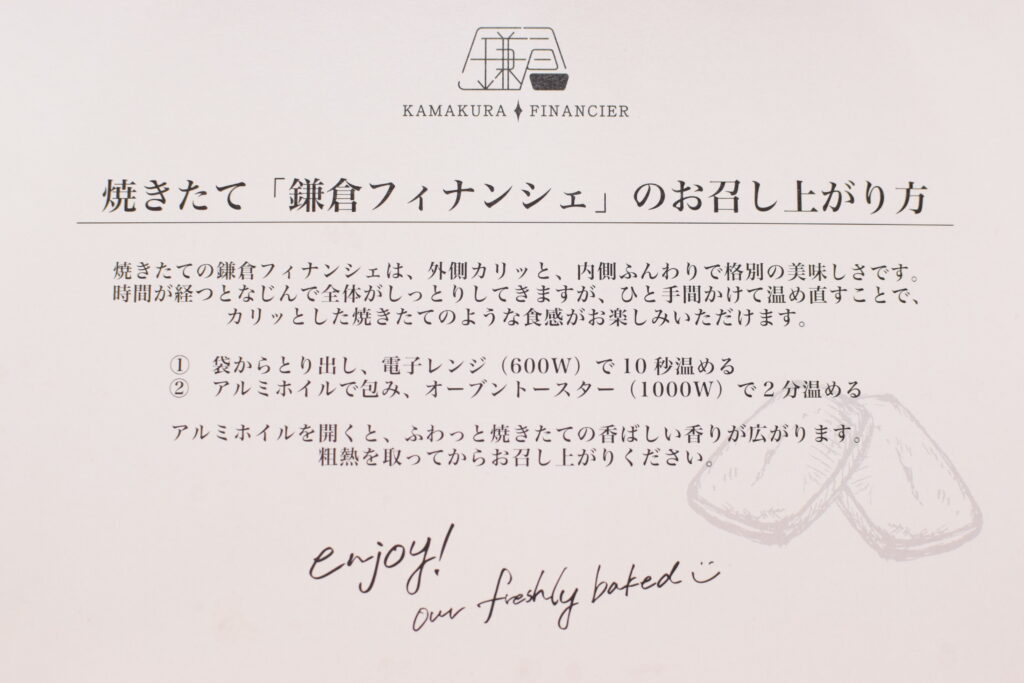 鎌倉
KAMAKURA FINANCIER
焼きたて「鎌倉フィナンシェ」のお召し上がり方
焼きたての鎌倉フィナンシェは、外側カリッと、内側ふんわりで格別の美味しさです。
時間が経つとなじんで全体がしっとりしてきますが、ひと手間かけて温め直すことで、
カリッとした焼きたてのような食感がお楽しみいただけます。
① 袋からとり出し、電子レンジ（600W）で10秒温める
② アルミホイルで包み、オーブントースター（1000W）で2分温める
アルミホイルを開くと、ふわっと焼きたての香ばしい香りが広がります。
粗熱を取ってからお召し上がりください。
enjoy!
our freshly baked